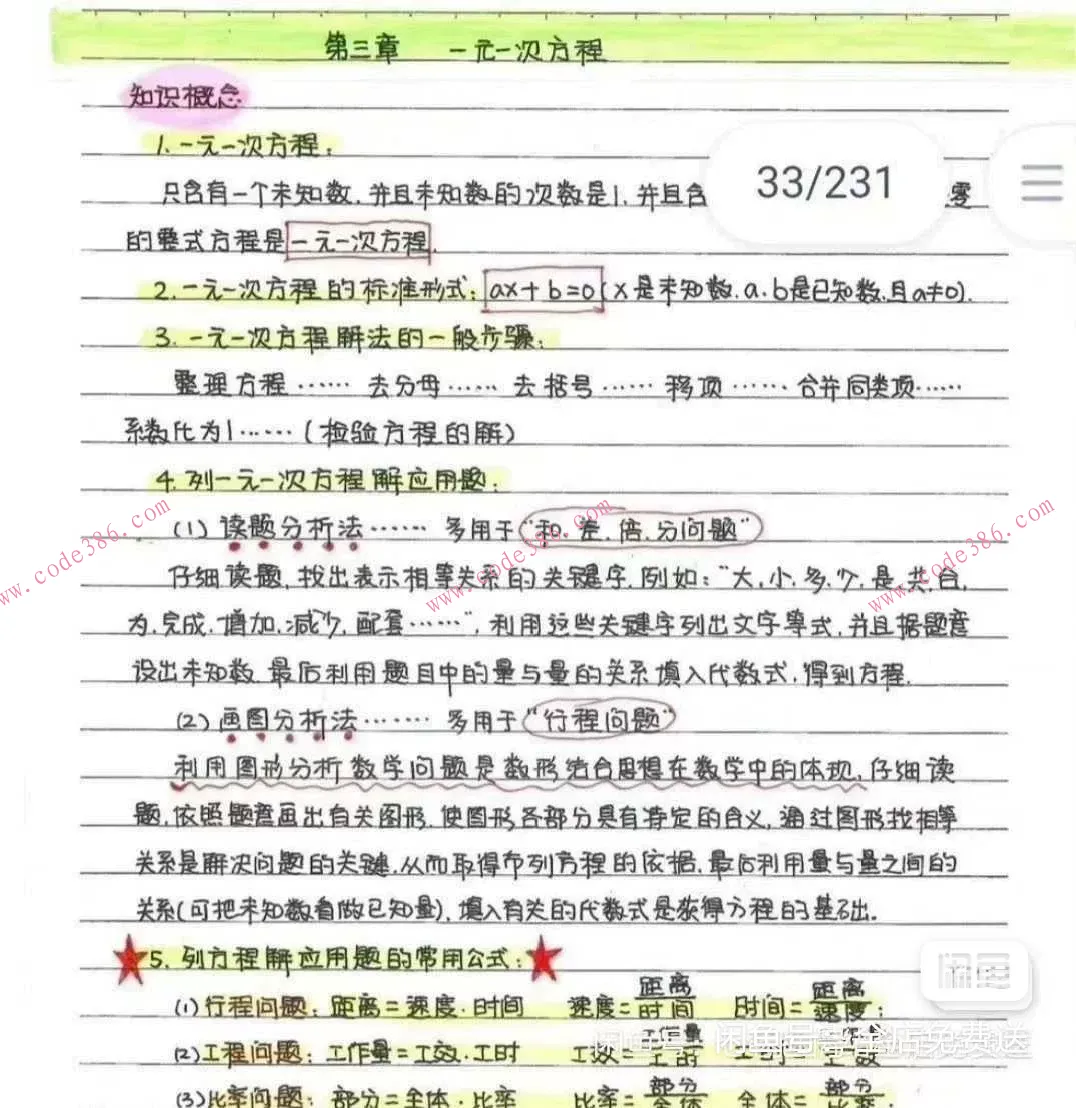 第三章 一元一次方程
知识概念
1.一元一次方程：
只含有一个未知数,并且未知数的次数是1,并且含
33/231
零
的整式方程是一元一次方程.
2.一元一次方程的标准形式：ax+b=0(x是未知数.a.b是已知数,且a≠0).
3.一元一次方程解法的一般步骤：
整理方程…… 去分母…… 去括号…… 移项…… 合并同类项……
系数化为1……(检验方程的解)
4.列一元一次方程解应用题：
(1)读题分析法…… 多用于"和,差,倍,分问题"
仔细读题,找出表示相等关系的关键字,例如："大,小,多,少,是,共,合,
为,完成,增加,减少,配套……",利用这些关键字列出文字等式,并且据题意
设出未知数,最后利用题目中的量与量的关系填入代数式,得到方程.
(2)画图分析法…… 多用于"行程问题"
利用图形分析数学问题是数形结合思想在数学中的体现,仔细读
题,依照题意画出有关图形,使图形各部分具有特定的含义,通过图形找相等
关系是解决问题的关键,从而取得布列方程的依据,最后利用量与量之间的
关系(可把未知数看做已知量),填入有关的代数式是获得方程的基础.
★5.列方程解应用题的常用公式：★
(1)行程问题：距离=速度·时间 速度=距离/时间 时间=距离/速度;
(2)工程问题：工作量=工效·工时 工效=工作量/工时
(3)比率问题：部分=全体·比率 比率=部分/全体 全体=部分/比率
www.code386.com
www.code386.com
www.code386.com
闲鱼